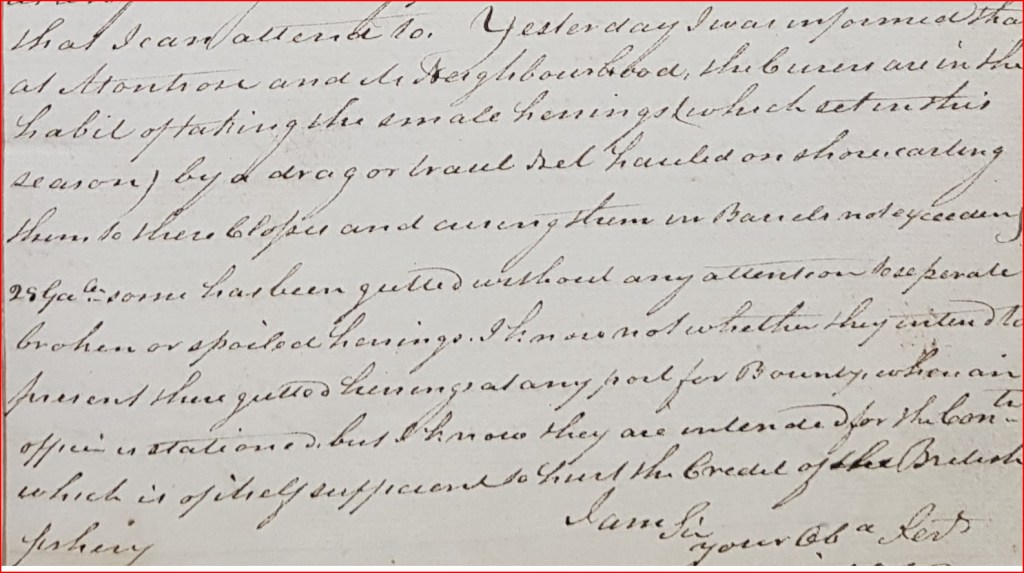 that I can attend to. Yesterday I was informed tha
at Montrose and its Neighbourhood, the Curers are in the
habit of taking the small herrings (which set in this
season) by a drag or traul Net hauled on shore carting
them to there Closses and cureing them in Barrels not exceeding
28 Galns some has been gutted without any attention to seperate
broken or spoiled herrings. I know not whether they intend to
present there gutted herrings at any port for Bounty, when an
officer is stationed, but I know they are intended for the Contt
which is of itself sufficient to hurt the Credit of the British
fishery
I am Sir
your Ob a Sert